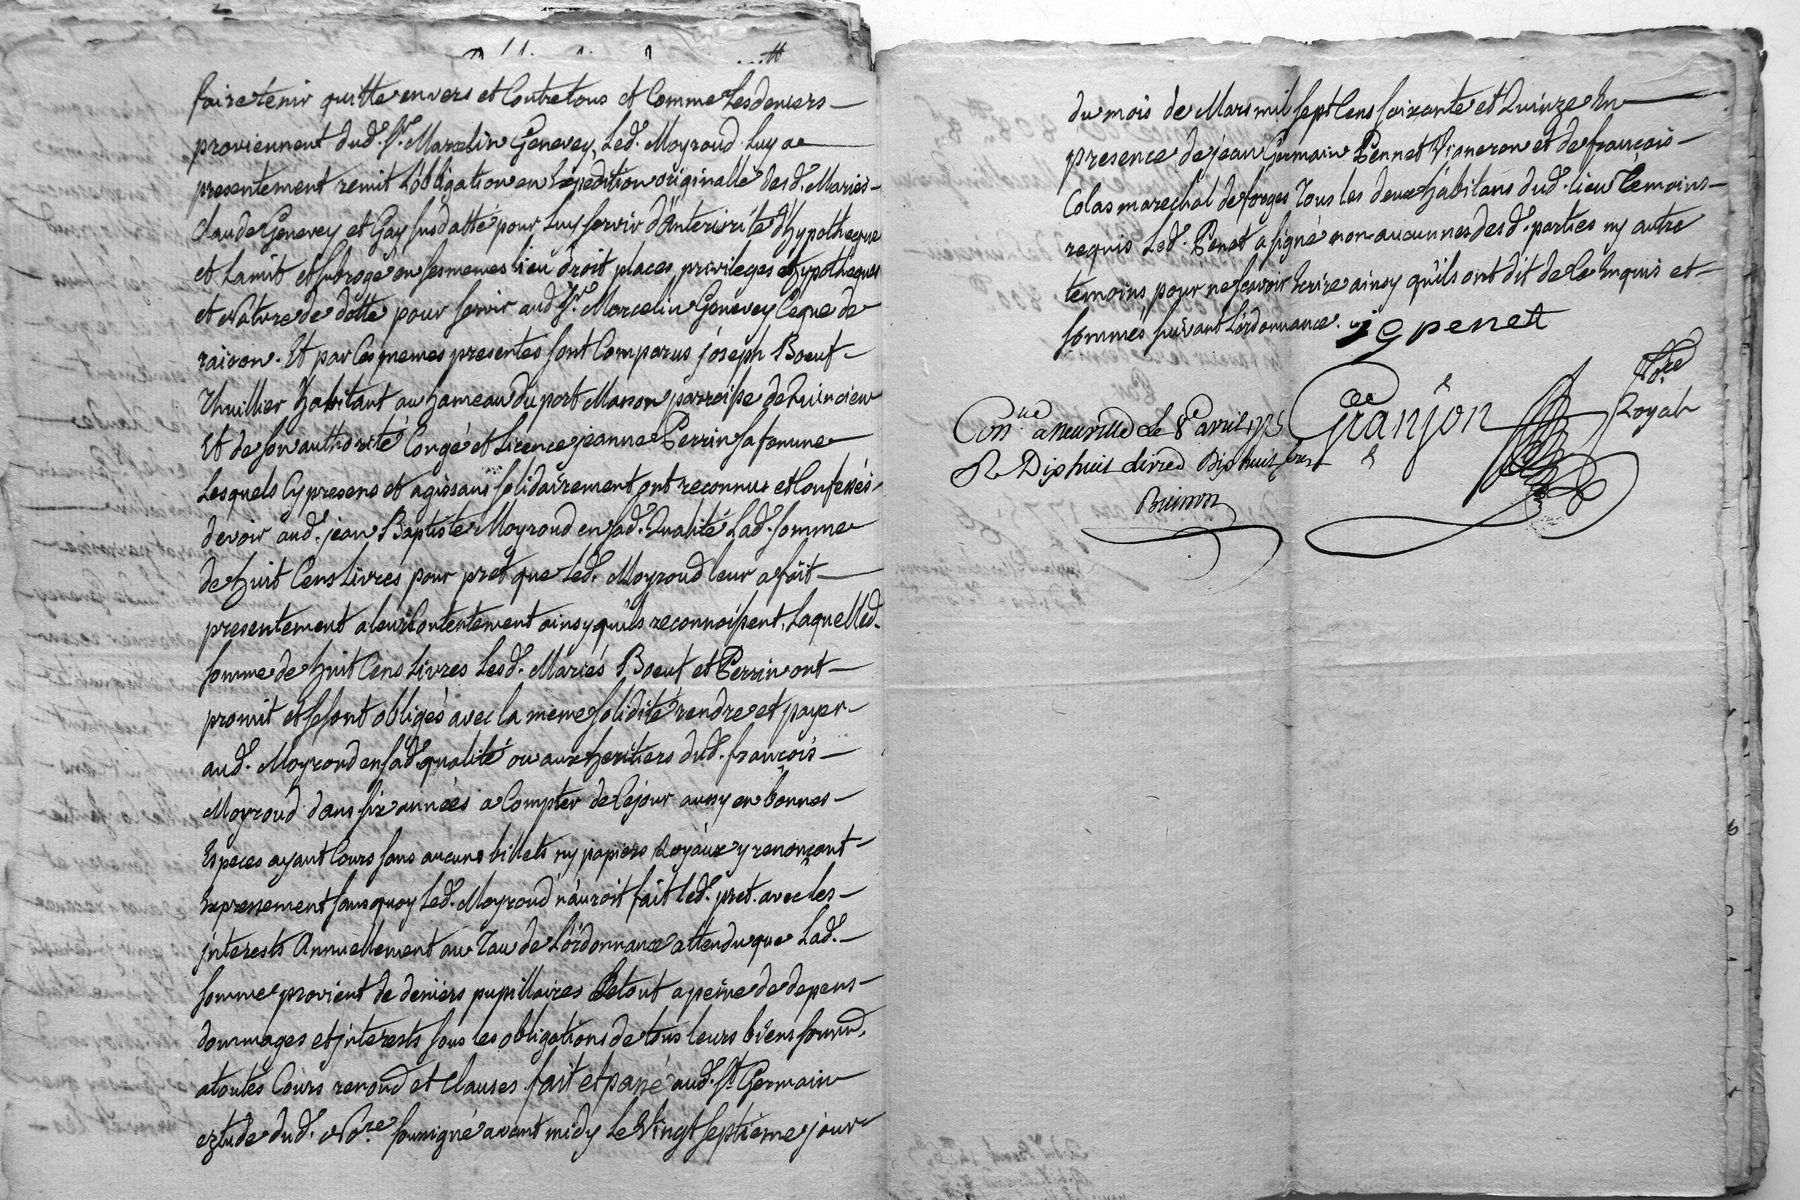 faire tenir quitte envers et Contre tous et Comme Les deniers
proviennent dud. Sr. Marcelin Genevey, Led. Moyroud Luy a
presentement remit L'obligation en Expedition originalle desd. Mariés
Claude Genevey et Gay susdatté pour Luy servir d'Anteriorité d'hypotheque
et La mit et subrogé en ses memes lieu droit places, privileges et hypotheques
et Nature de dette pour servir aud. Sr. Marcelin Genevey Ceque de
raison. Et par Ces memes presentes sont Comparus joseph Boeuf
Thuillier habitant au hameau du port Masson parroisse de Quincieu
Et de son authorité Congé et Licence jeanne Perrin sa femme
Lesquels Cy presens et agissans solidairement ont reconnus et Confessés
devoir aud. jean Baptiste Moyroud en sad. Qualité Lad. somme
de huit Cens Livres pour pret que Led. Moyroud leur a fait
presentement a leur Contentement ainsy qu'ils reconnoissent, Laquelled.
somme de huit Cens Livres Lesd. Mariés Boeuf et Perrin ont
promit et se sont obligés avec la meme solidité rendre et payer
aud. Moyroud en sad. qualité ou aux heritiers dud. françois
Moyroud dans six années a Compter de Cejour aussy en bonnes
Especes ayant Cours sans aucuns billets ny papiers Royaux y renonçant
Expressement sans quoy Led. Moyroud n'auroit fait led. pret. avec les
jnterests Annuellement au Tau de L'ordonnance attendu que Lad.
somme provient de deniers pupillaires Le tout a peine de depens
dommages et jnterests sous les obligations de tous leurs biens soumd.
a toutes Cours renond. et Clauses. fait et passé aud. St. Germain
etude dud. Nore. soussigné avant midy Le Vingt septieme jour
du mois de Mars mil sept Cens soixante et Quinze En
presence de jean Germain Pennet Vigneron et de françois
Colas marechal de forges Tous les deux habitans dud. lieu Témoins
requis Led. Penet a signé non aucunnes desd. parties ny autre
temoins pour ne sçavoir Ecrire ainsy qu'ils ont dit de Ce Enquis et
sommés suivant L'ordonnance.
j g penet
Granjon
Nore
Royal
Conlé a neuville Le 8 avril 1775
R Dix huit Livres Dix huit sous